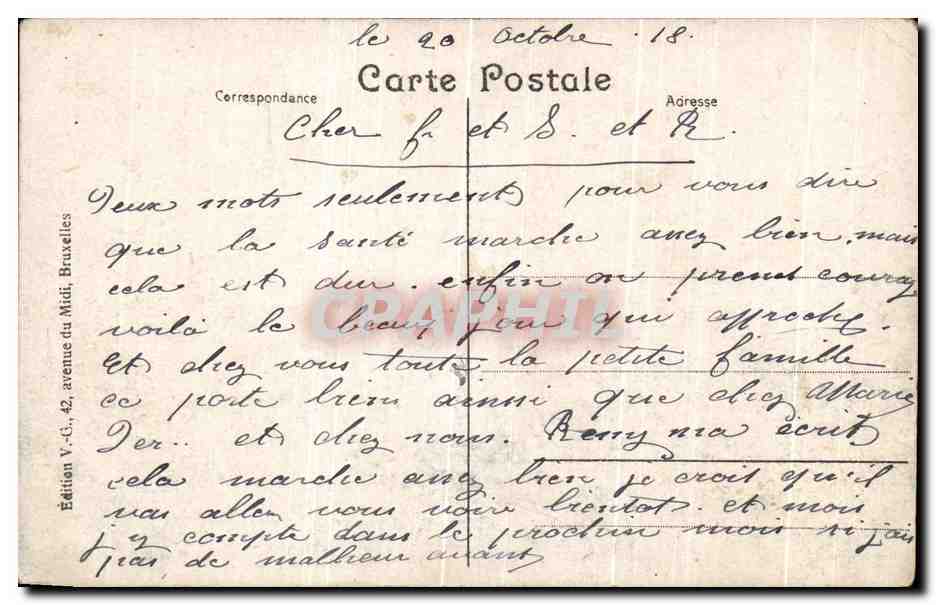 le 20 Octobre 18.
Carte Postale
Correspondance
Adresse
Cher fr et S. et R.
Deux mots seulement pour vous dire
que la santé marche assez bien, mais
cela est dur. enfin on prend courage
voilà le beau jour qui approche.
Et chez vous toute la petite famille
ce porte bien ainsi que chez Marie
Der.. et chez nous. Remy ma écrit
cela marche assez bien je crois qu'il
vas aller vous voire bientot. et mois
j'y compte dans le prochin mois si jais
pas de malheur avant
Édition V.-G., 42, avenue du Midi, Bruxelles
CPAPHIL